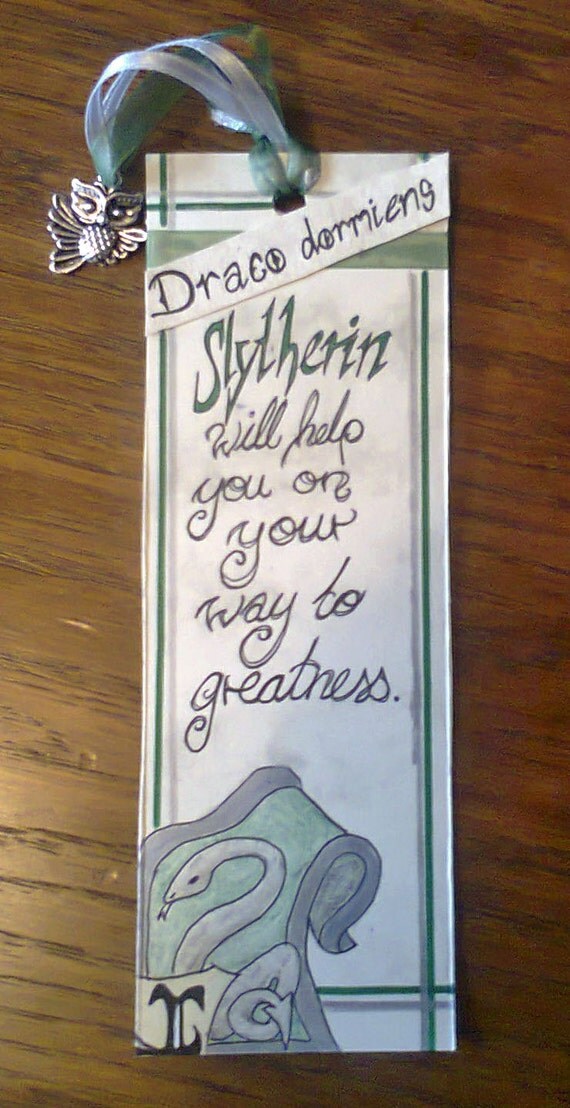 Draco dormiens
Slytherin
will help
you on
your
way to
greatness.